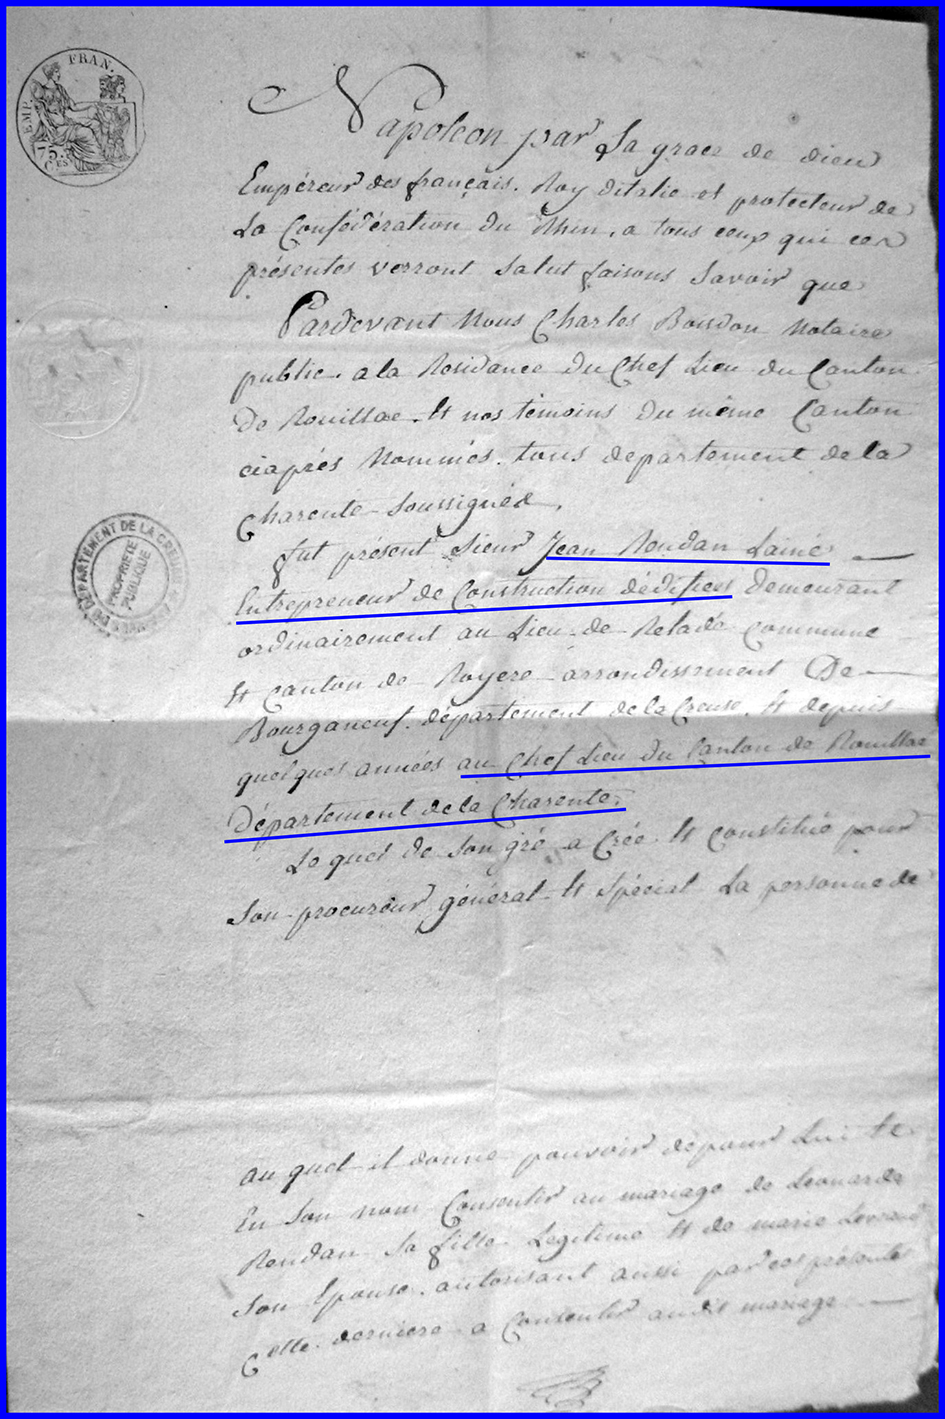 EMP. FRAN.
75.
CES
Napoleon par la grace de dieu
Empéreur des français. Roy d'italie et protecteur de
La Confédération du Rhin, a tous ceux qui ces
présentes verront salut faisons savoir que
Pardevant Nous Charles Bourdon Notaire
public. a la Residance du Chef Lieu du Canton
De Rouillac. Et nos témoins du même Canton
ciaprés Nommés. tous département de la
Charente soussignés.
fut présent Sieur Jean Rendan Lainé
Entrepreneur de Construction dédifices demeurant
ordinairement au Lieu de commune
Et canton de Royere arrondissement De
Bourganeuf. département de la Creuse. Et depuis
quelques années au Chef Lieu du Canton de Rouillac
Département de la Charente.
Le quel de son gré a Crée Et constitué pour
Son procureur général Et spécial La personne de
DÉPARTEMENT DE LA CREUSE
PROPRIÉTÉ
PUBLIQUE
au quel il donne pouvoir de pour Lui Et
En son nom Consentir au mariage de Leonarde
Rendan sa fille Legitime Et de marie
son Epouse. autorisant aussi par ces présentes
Cette derniere a Consentir audit mariage